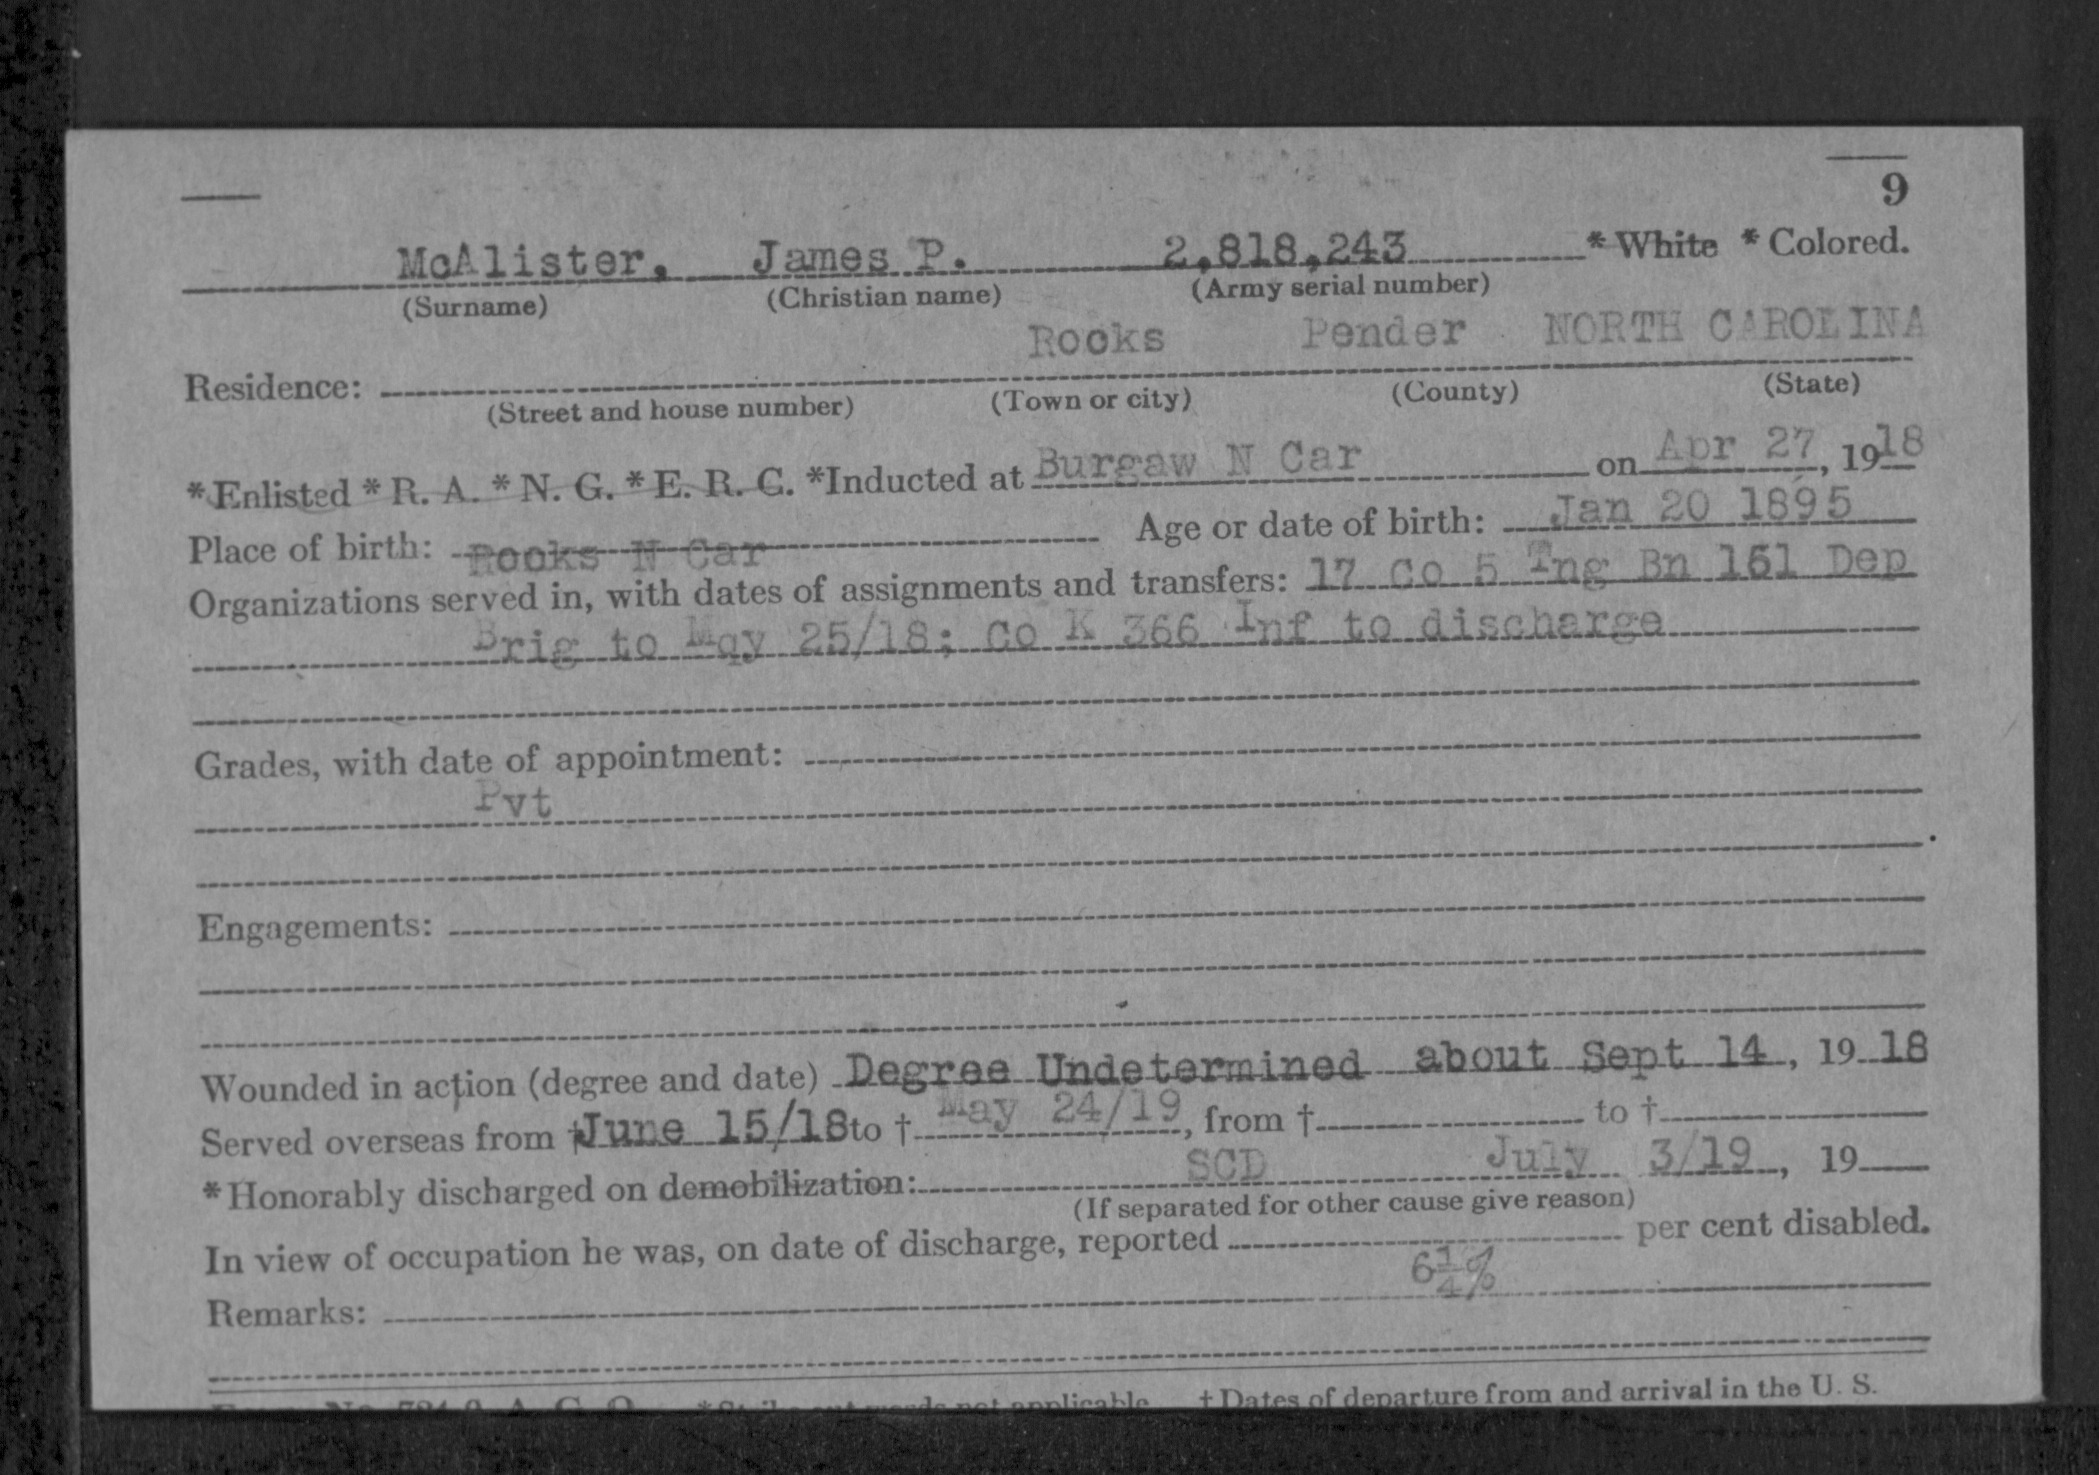 9
McAlister, James P. 2,818,243 * White * Colored.
(Surname) (Christian name) (Army serial number)
Rooks Pender NORTH CAROLINA
Residence:
(Street and house number) (Town or city) (County) (State)
*Enlisted * R. A. * N. G. * E. R. C. *Inducted at Burgaw N Car on Apr 27, 1918
Place of birth: Rooks N Car Age or date of birth: Jan 20 1895
Organizations served in, with dates of assignments and transfers: 17 Co 5 Tng Bn 161 Dep
Brig to May 25/18; Co K 366 Inf to discharge
Grades, with date of appointment:
Pvt
Engagements:
Wounded in action (degree and date) Degree Undetermined about Sept 14, 19 18
Served overseas from †June 15/18 to † May 24/19, from † to †
*Honorably discharged on demobilization: SCD July 3/19, 19
(If separated for other cause give reason)
In view of occupation he was, on date of discharge, reported per cent disabled.
6 1/4 %
Remarks:
*Strike out words not applicable † Dates of departure from and arrival in the U. S.